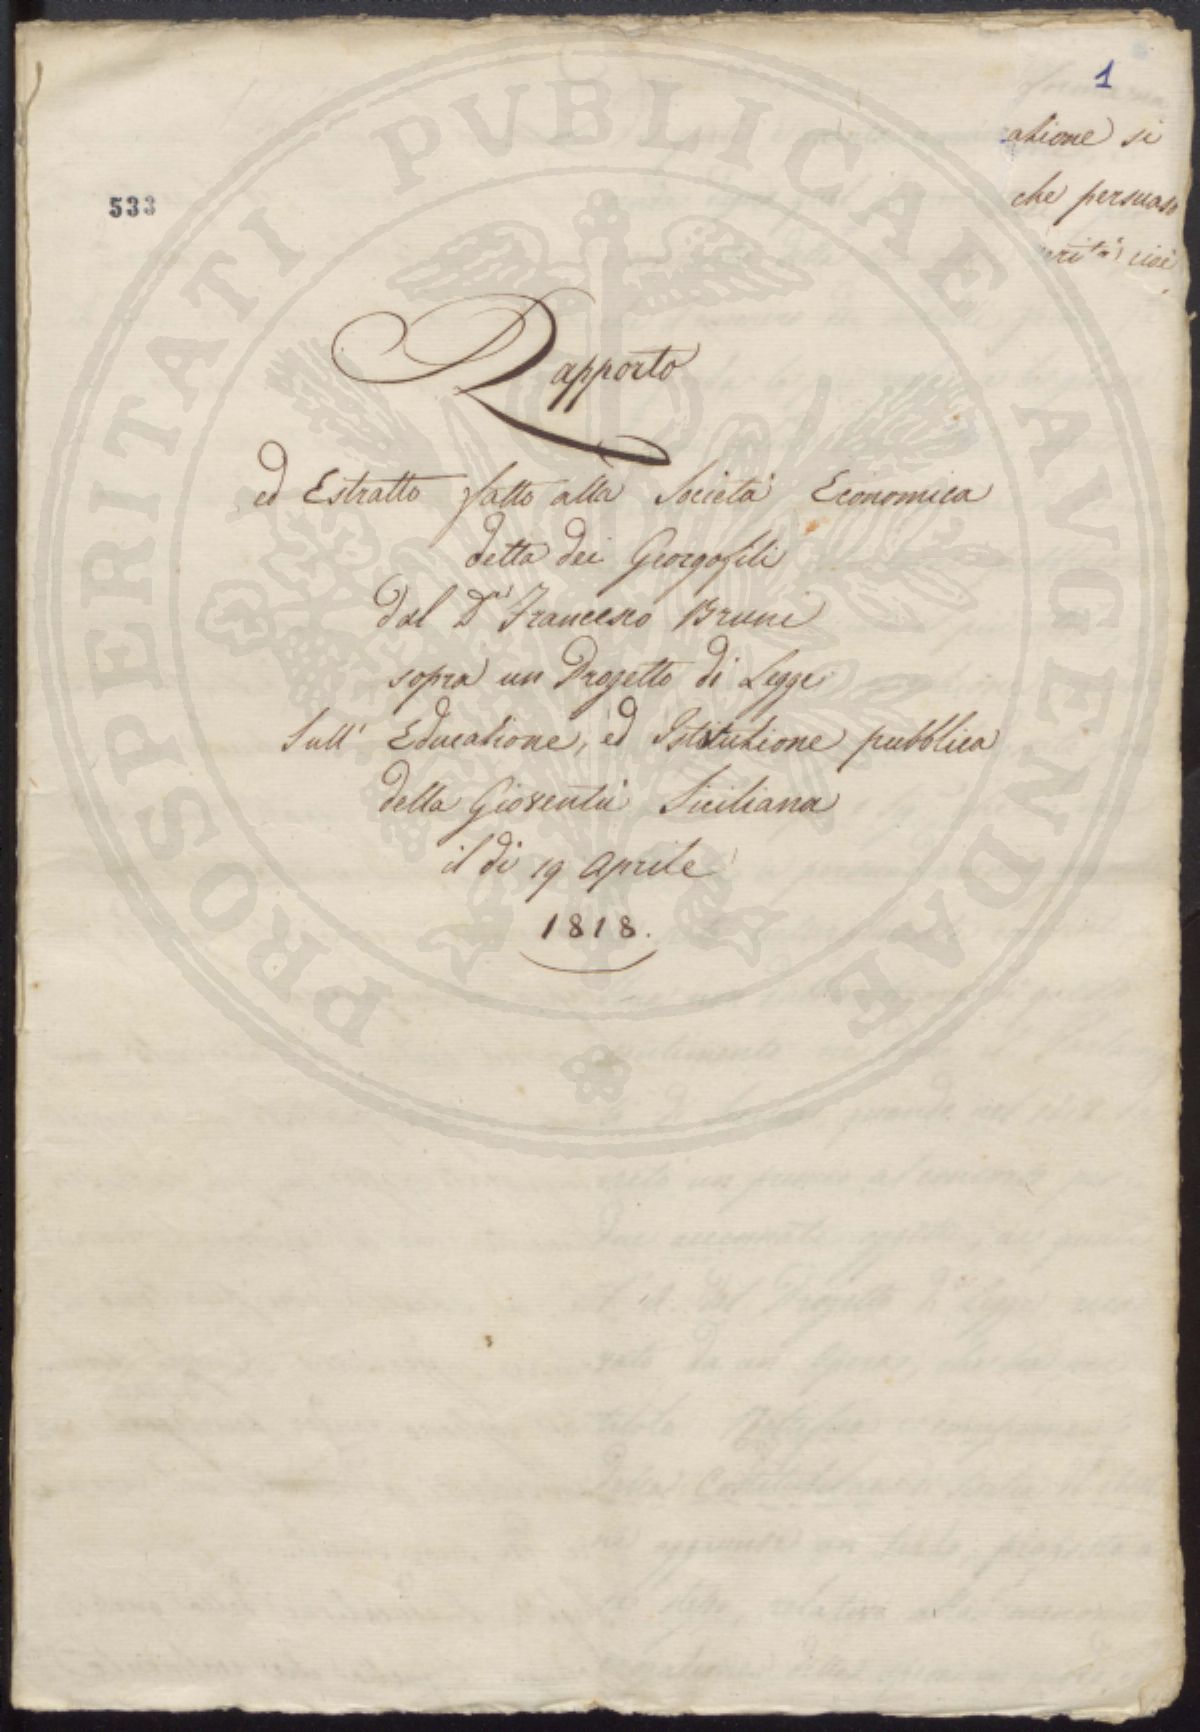 1
azione si
che persuaso
533
Rapporto
ed Estratto fatto alla Società Economica
detta dei Georgofili
dal Dr. Francesco Bruni
sopra un Progetto di Legge
sull' Educazione, ed Istituzione pubblica
della Gioventù Siciliana
il dì 19 Aprile
1818.
PROSPERITATI PUBLICAE AVGENDAE